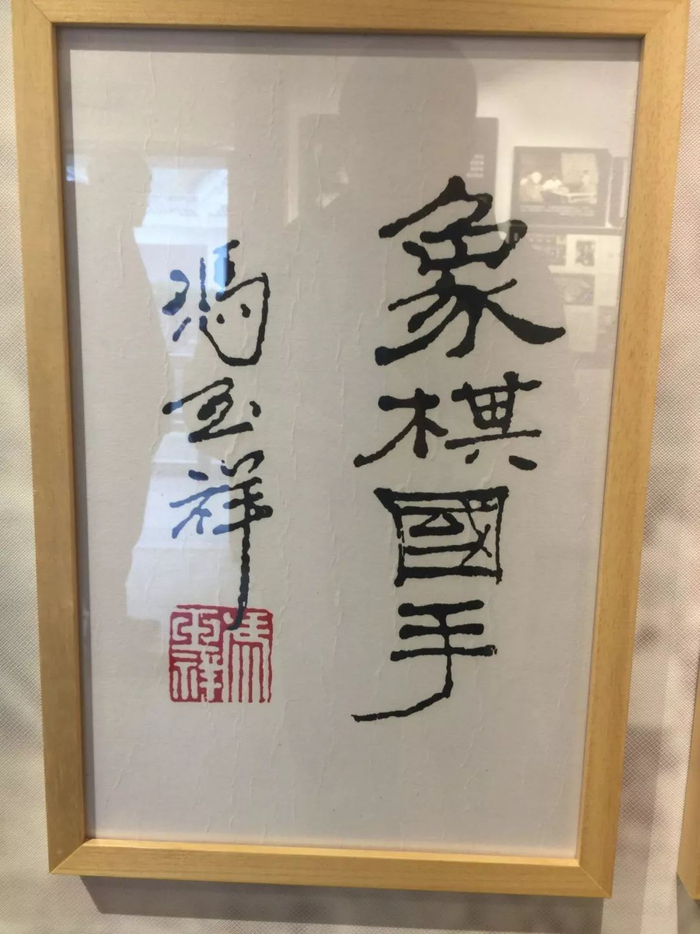 象棋國手
馮玉祥
馮玉祥